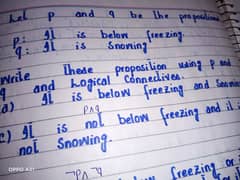 Let p and q be the proposition
p: It is below freezing.
q: It is Snowing.
write these proposition using p and
q and Logical Connectives.
a) It is below freezing and Snowing
p∧q
c) It is not below freezing and it is
not Snowing.
freezing or
OPPO A31